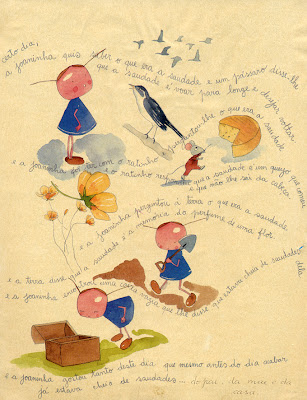 certo dia,
a joaninha quis saber o que era a saudade e um pássaro disse-lhe
que a saudade é voar para longe e desejar voltar
e a joaninha foi ter com o ratinho perguntar-lhe o que era a saudade
e o ratinho que a saudade é um queijo que comeu
e que não lhe sai da cabeça
e a joaninha perguntou à terra o que era a saudade
e a terra disse que a saudade é a memória do perfume de uma flor
e a joaninha encontrou uma caixa vazia que lhe disse que estava cheia de saudades dela
e a joaninha gostou tanto deste dia que mesmo antes do dia acabar
já estava cheia de saudades... do pai, da mãe e da
casa.